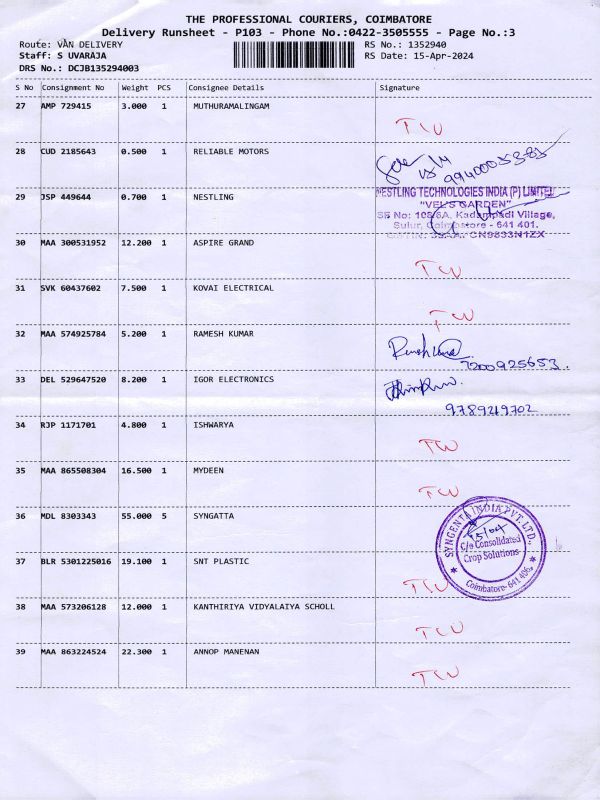 THE PROFESSIONAL COURIERS, COIMBATORE
Delivery Runsheet - P103 - Phone No.:0422-3505555 - Page No.:3
Route: VAN DELIVERY RS No.: 1352940
Staff: S UVARAJA RS Date: 15-Apr-2024
DRS No.: DCJB135294003
S No Consignment No Weight PCS Consignee Details Signature
27 AMP 729415 3.000 1 MUTHURAMALINGAM
28 CUD 2185643 0.500 1 RELIABLE MOTORS
29 JSP 449644 0.700 1 NESTLING
NESTLING TECHNOLOGIES INDIA (P) LIMITED
"VEL'S GARDEN"
SF No: 108/6A, Kadampadi Village,
Sulur, Coimbatore - 641 401.
30 MAA 300531952 12.200 1 ASPIRE GRAND
31 SVK 60437602 7.500 1 KOVAI ELECTRICAL
32 MAA 574925784 5.200 1 RAMESH KUMAR
7200925653.
33 DEL 529647520 8.200 1 IGOR ELECTRONICS
9789249702
34 RJP 1171701 4.800 1 ISHWARYA
35 MAA 865508304 16.500 1 MYDEEN
36 MDL 8303343 55.000 5 SYNGATTA
SYNGENTA INDIA PVT. LTD.,
15/04
C/o Consolidated
Crop Solutions
Coimbatore- 641 406.
37 BLR 5301225016 19.100 1 SNT PLASTIC
38 MAA 573206128 12.000 1 KANTHIRIYA VIDYALAIYA SCHOLL
39 MAA 863224524 22.300 1 ANNOP MANENAN